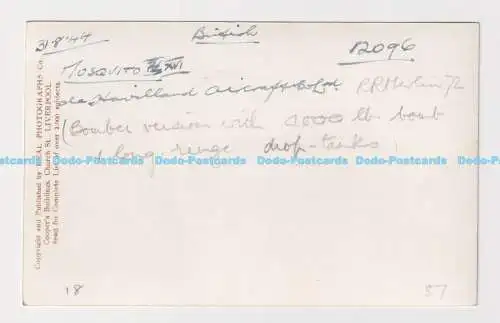 31-8-44
British
12096
MOSQUITO XVI
de Havilland Aircraft Co Ltd. RR Merlin 72
(Bomber version with 4000 lb bomb
& long-range drop-tanks)
Copyright and Published by REAL PHOTOGRAPHS Co.
Cooper's Buildings, Church St., LIVERPOOL
Send for Complete List of over 2,000 subjects
18
57
Postcards Odo-Postcards Odo-Postcards Odo-Postcards Odo-Postcards